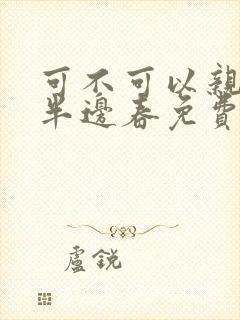 可不可以親
半邊春免費
盧銳